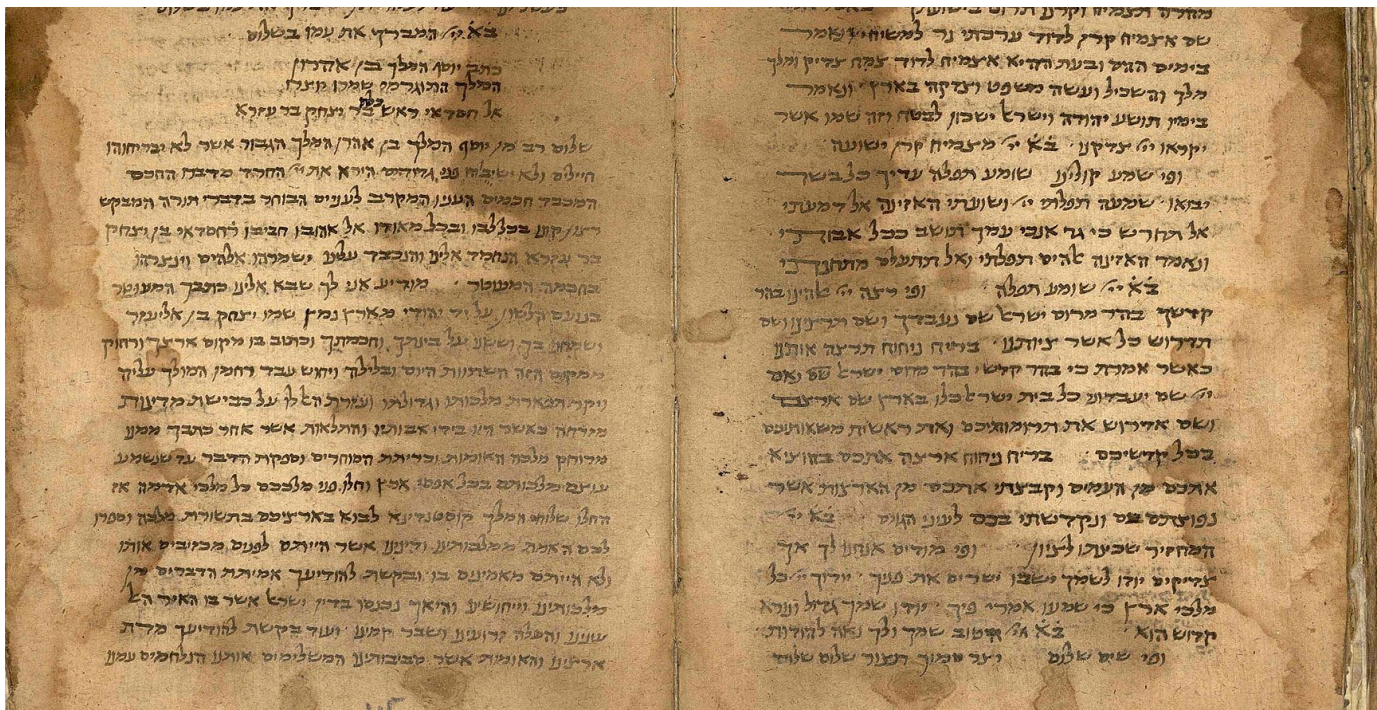 שם אצמיח קרן לדוד ערכתי נר למשיחי ונאמר
בימים ההם ובעת ההיא אצמיח לדוד צמח צדיק ומלך
מלך והשכיל ועשה משפט וצדקה בארץ ונאמר
בימיו תושע יהודה וישראל ישכון לבטח וזה שמו אשר
יקראו יי צדקנו בא יי מצמיח קרן ישועה
ופי שמע קולינו שומע תפלה עדיך כל בשר
יבואו שמעה תפלתי יי ושועתי האזינה אל דמעתי
אל תחרש כי גר אנכי עמך תושב ככל אבותי
ונאמר האזינה אלהים תפלתי ואל תתעלם מתחנתי
בא יי שומע תפלה ופי רצה יי אלהינו בהר
קדשך בהר מרום ישראל שם נעבדך ושם תרצינו ושם
תדרוש כל אשר ציותנו בריח ניחוח תרצה אותנו
כאשר אמרת כי בהר קדשי בהר מרום ישראל נאם
יי שם יעבדוני כל בית ישראל כלו בארץ שם
ושם אדרוש את תרומותיכם ואת ראשית משאותיכם
בכל קדשיכם בריח ניחוח ארצה אתכם בהוציאי
אתכם מן העמים וקבצתי אתכם מן הארצות אשר
נפוצתם בם ונקדשתי בכם לעיני הגוים בא יי
המחזיר שכינתו לציון ופי מודים אנחנו לך אך
צדיקים יודו לשמך ישבו ישרים את פניך יודוך יי כל
מלכי ארץ כי שמעו אמרי פיך יודו שמך גדול ונורא
קדוש הוא בא יי הטוב שמך ולך נאה להודות
ופי שים שלום יצר סמוך תצור שלום שלום
בא יי המברך את עמו בשלום
כתב יוסף המלך בן אהרון
המלך התוגרמי שמרו יוצרו
אל חסדאי ראש כלה בר יצחק בר עזרא
שלום רב מן יוסף המלך בן אהרן המלך הגבור אשר לא יבריחוהו
חיילים ולא ישיבוהו פני גדודים הירא את יי החרד מדברו החכם
המכבד חכמים הענו המקרב לעניים הבוחר בדברי תורה המבקש
רצון קונו בכל לבו ובכל מאודו אל אהבו חביבו ר חסדאי בן יצחק
בר עזרא הנחמד אלינו והנכבד עלינו ישמרהו אלהים וינצרהו
בחכמה המעוטר מודיע אני לך שבא אלינו כתבך המעוטר
בנועם הלשון על יד יהודי מארץ נמץ שמו יצחק בן אליעזר
ושמחנו בך וששנו על בינתך וחכמתך וכתוב בו מקום ארצך ורחוק
ממקום הזה השויות היום ובלילה ויחוש עבד רחמן המולך עליה
ויקר תפארת מלכותו וגדולתו ועזרת האל לו על כבישת מדינות
מזרחה כאשר היו בידי אבותיו והתלאות אשר אחר כתבך ממנו
מרוחק מלכה האומות וכריתת הסוחרים וספקות הדבר עד שנשמע
עוצם מלכותם בכל אפסי ארץ וחלו פני מלככם כל מלכי אדמה אז
החלו שלוחי המלך קוסטנדינא לבוא בארציכם בתשורת מלכה וספרו
לכם האמת ממלכותנו ודינינו אשר הייתם לפנים מכזיבים אותו
ולא הייתם מאמינים בו ובקשת להודיעך אמיתת הדברים מן
מלכותינו וייחושינו והיאך נכנסו בדין ישראל אשר בו האיר האל
עינינו והפלה זרועינו ושבר קמינו ועוד בקשת להודיעך מדת
ארצינו והאומות אשר סביבותינו המשלימים אותנו הנלחמים עמנו